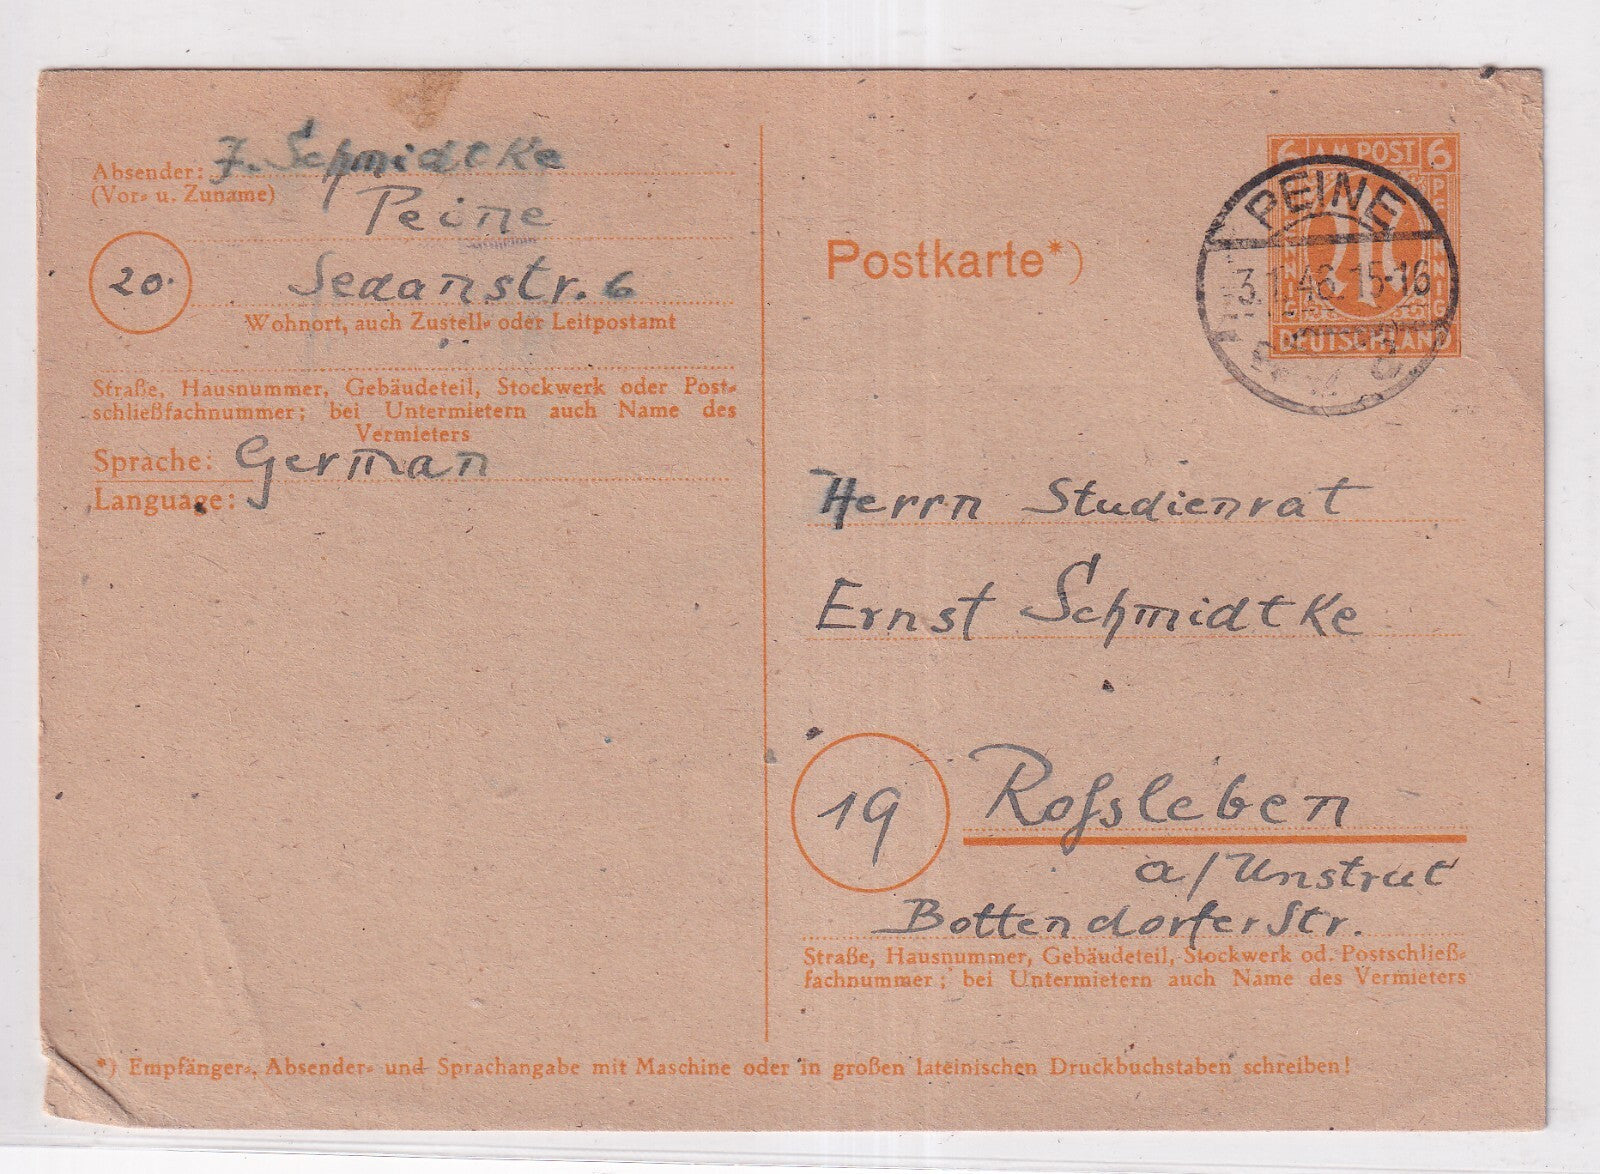 Absender: J. Schmidtke
(Vor- u. Zuname)
Peine
20.
Sedanstr. 6
Wohnort, auch Zustell- oder Leitpostamt
Straße, Hausnummer, Gebäudeteil, Stockwerk oder Post-
schließfachnummer; bei Untermietern auch Name des
Vermieters
Sprache: German
Language:
Postkarte*)
6 AM POST 6
PFENNIG
PFENNIG
DEUTSCHLAND
PEINE
46. 15-16
Herrn Studienrat
Ernst Schmidtke
19
Roßsleben
a/Unstrut
Bottendorfer Str.
Straße, Hausnummer, Gebäudeteil, Stockwerk od. Postschließ-
fachnummer; bei Untermietern auch Name des Vermieters
*) Empfänger-, Absender- und Sprachangabe mit Maschine oder in großen lateinischen Druckbuchstaben schreiben!